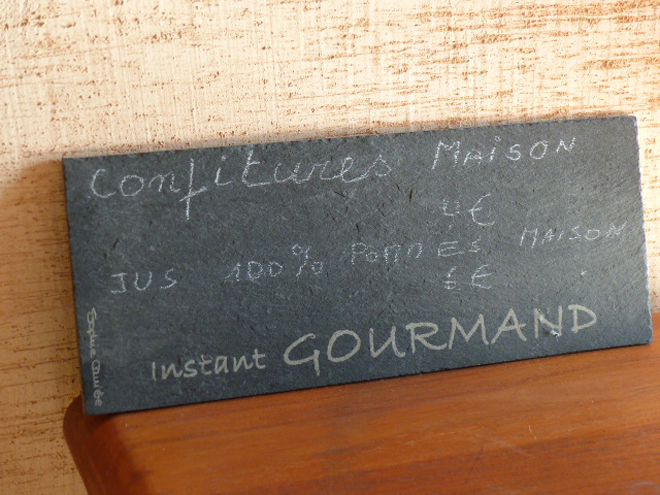 Confitures MAISON
4€
JUS 100% POMMES MAISON
6€
Instant GOURMAND